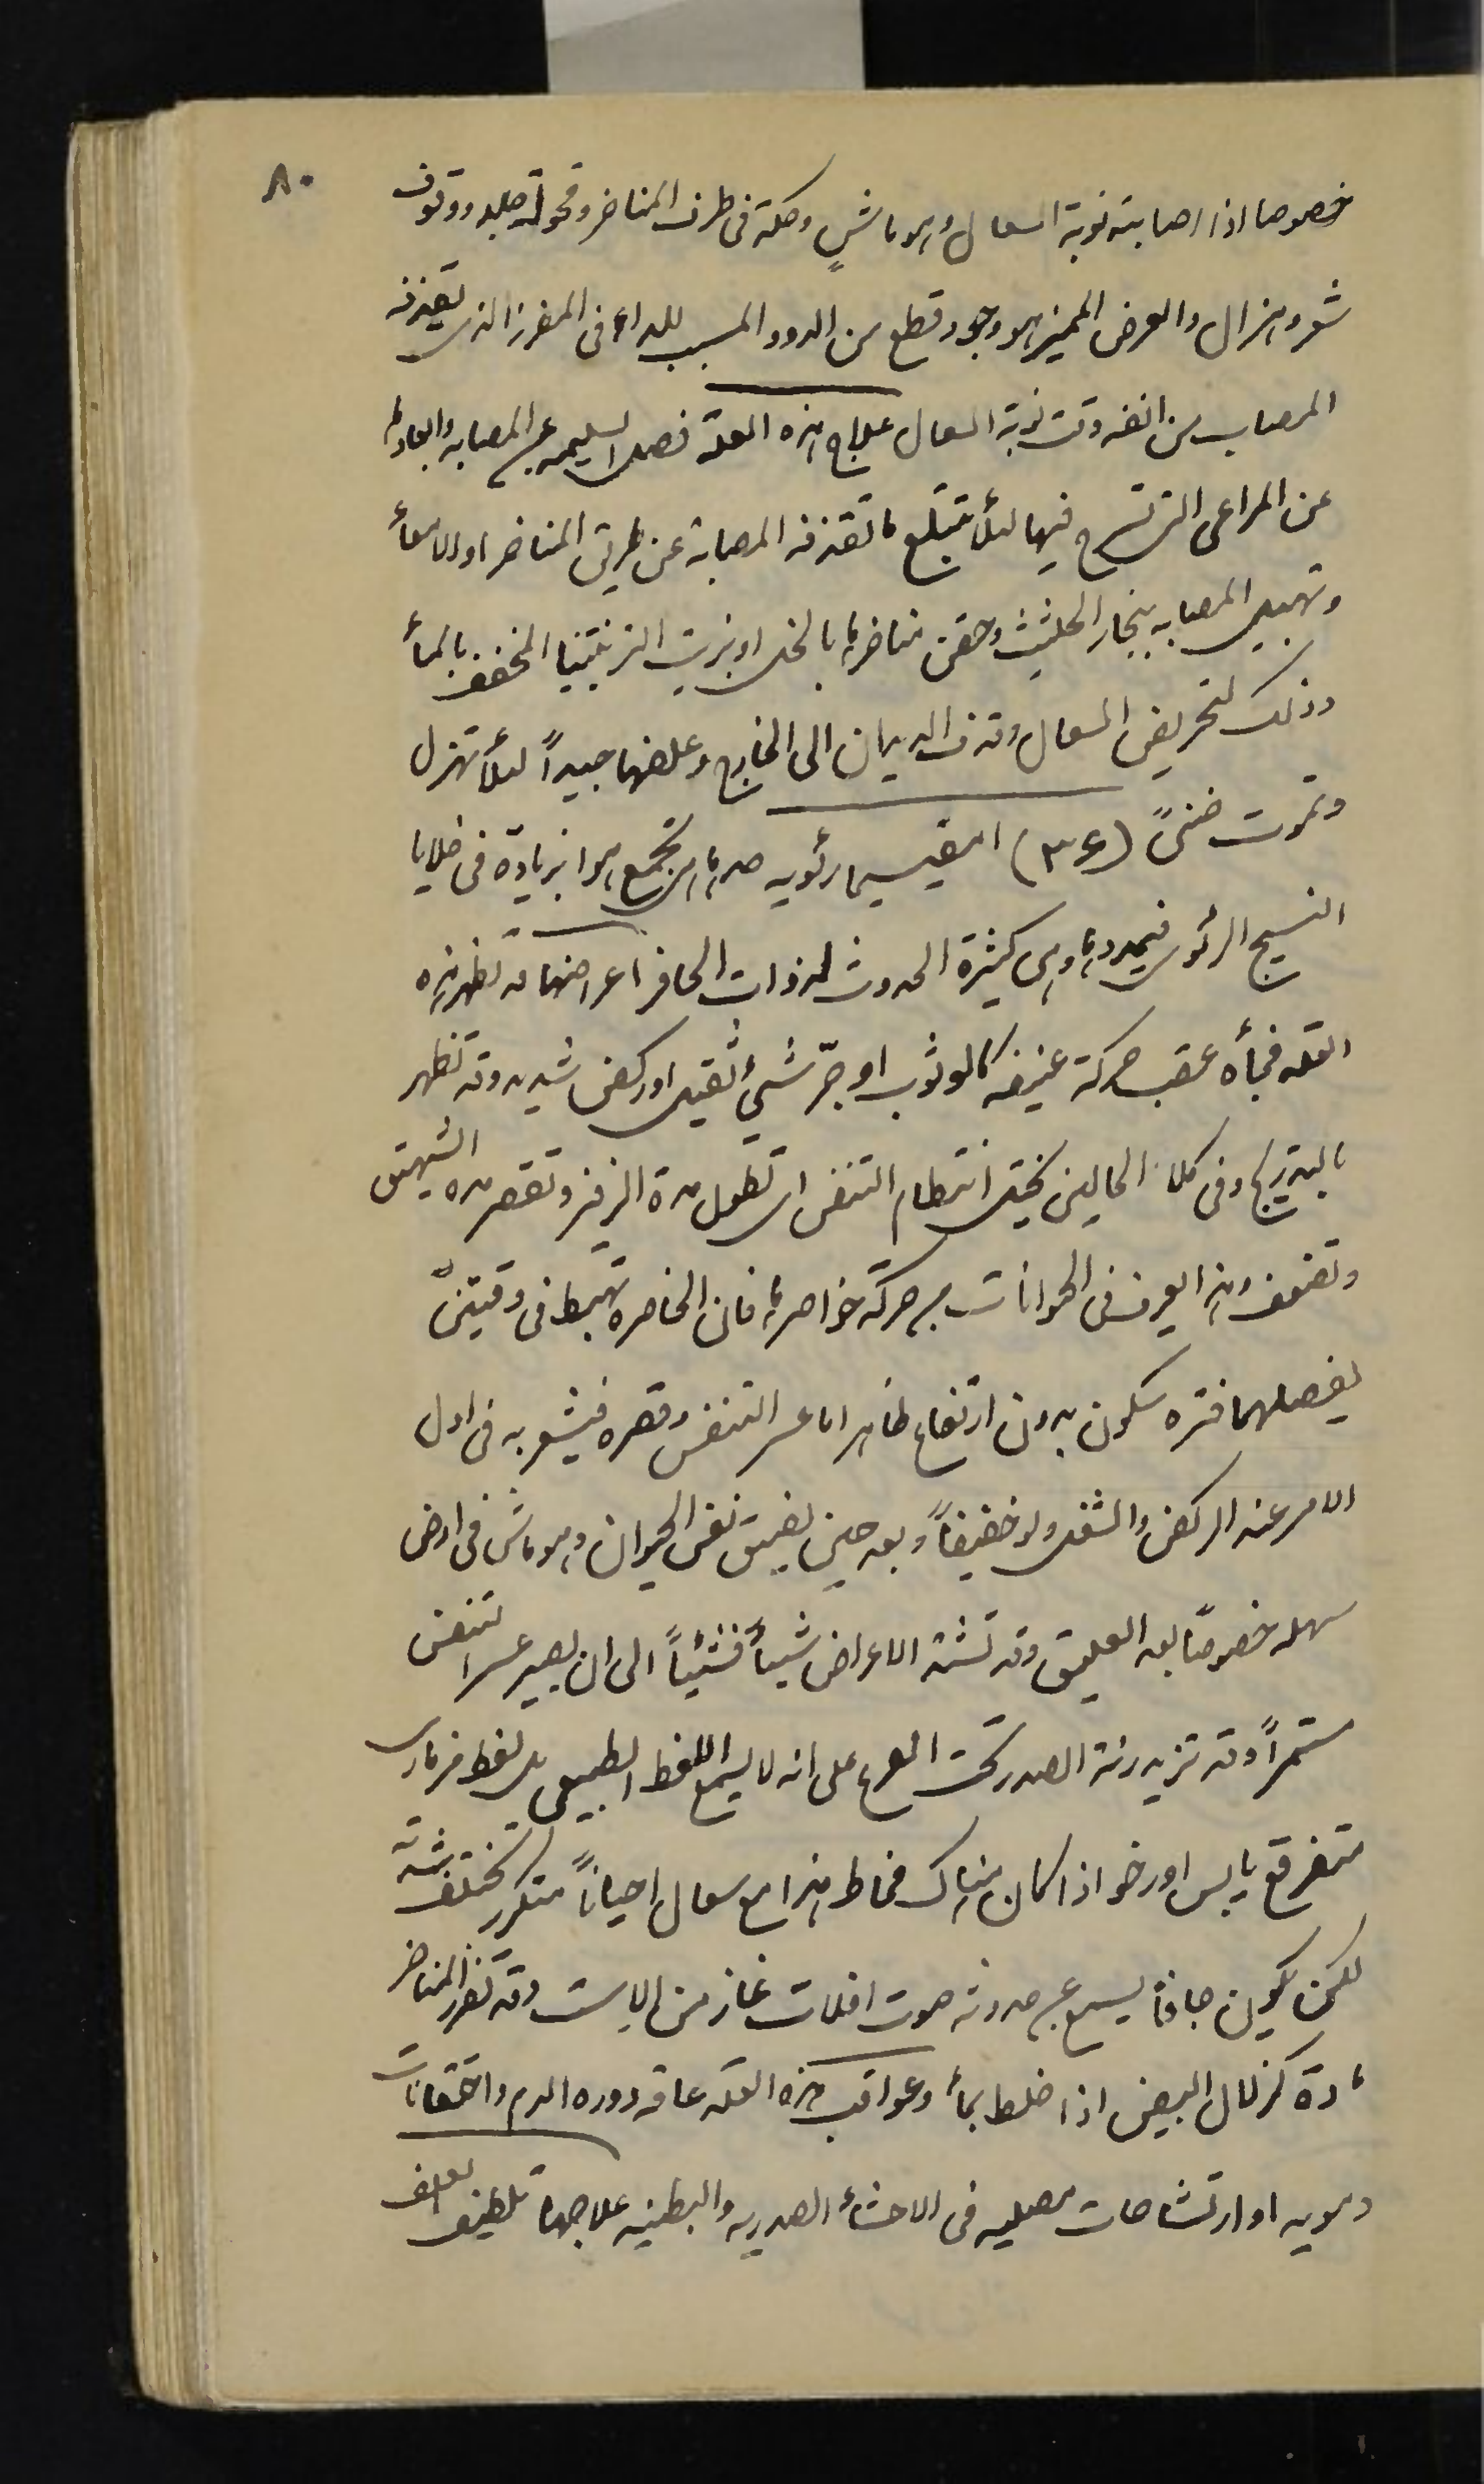 ٨٠
خصوصا اذا اصابته نوبة السعال وهو ماشٍ وحكة فى طرف المناخر وقحولة جلد ووقوف
شعر وهزال والعرض المميز هو وجود قطع من الدود المسبب للداء فى المفرز الذى تقذفه
المصاب من انفه وقت نوبة السعال علاج هذه العلة فصل السليمه عن المصابه وابعادها
عن المراعى التى تسرح فيها لئلا تبتلع ما تقذفه المصابة عن طريق المناخر او الامعأ
وتهبيل المصابه ببخار الحلتيث وحقن مناخرها بالخل او بزيت التربنتينا المخفف بالمأ
وذلك لتحريض السعال وقذف الديدان الى الخارج وعلفها جيداً لئلا تهزل
وتموت ضنىً (٣٤) امفيسيما رئويه حدها هى تجمع هوا بزيادة فى خلايا
النسيج الرئوى فيمددها وهى كثيرة الحدوث لذوات الحافر اعراضها قد تظهر هذه
العله فجأه عقب حركة عنيفه كالوثوب او جرّ شيئ ثقيل او ركض شديد وقد تظهر
بالتدريج وفى كلا الحالين يختل انتظام التنفس اى تطول مدة الزفر وتقصر مده الشهيق
وتضعف وهذا يعرف فى الحيوانات من حركة خواصرها فان الخاصره تهبط فى وقتين
يفصلهما فتره سكون بدون ارتفاع ظاهر اما عسر التنفس وقصره فيشعر به فى اول
الامر عند الركض والشغل ولو خفيفاً وبعد حين يضيق نفس الحيوان وهو ماش فى ارض
سهله خصوصًا بعد العليق وقد تشتد الاعراض شيأ فشيئاً الى ان يصير عسر التنفس
مستمراً وقد تزيد رنة الصدر تحت القرع على انه لا يسمع اللغط الطبيعى بل لغط خرخارى
متفرقع يابس او رخو اذا كان هناك مخاط هذا مع سعال احياناً متكرر تختلف شدته
لكن يكون جافاً يسمع عن حدوثه صوت افلات غاز من الاست وقد تفرز المناخر
مادة كزلال البيض اذا خلط بمأ وعواقب هذه العله عاقه دوره الدم واحتقانات
دمويه او ارتشاحات مصليه فى الاحشأ الصدريه والبطنيه علاجها تلطيف العلف